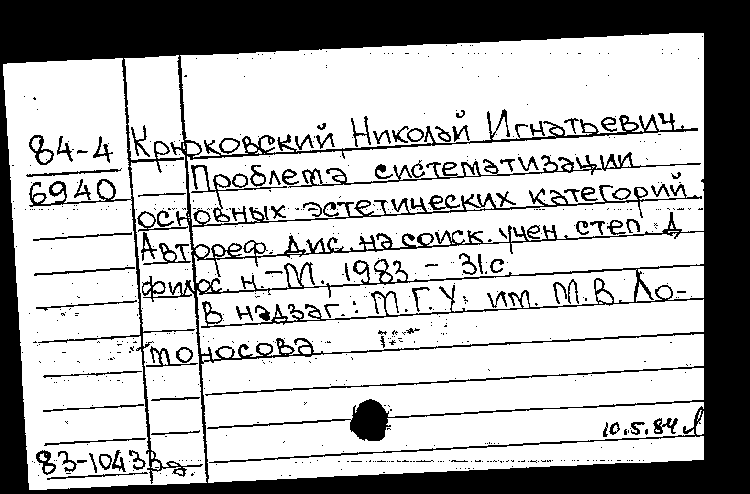 84-4
6940
Крюковский, Николай Игнатьевич.
Проблема систематизации
основных эстетических категорий.
Автореф. дис. на соиск. учен. степ. д
филос. н. - М., 1983 - 31.с.
В надзаг.: М.Г.У. им. М.В. Ло-
моносова.
10.5.84
83-10433д.